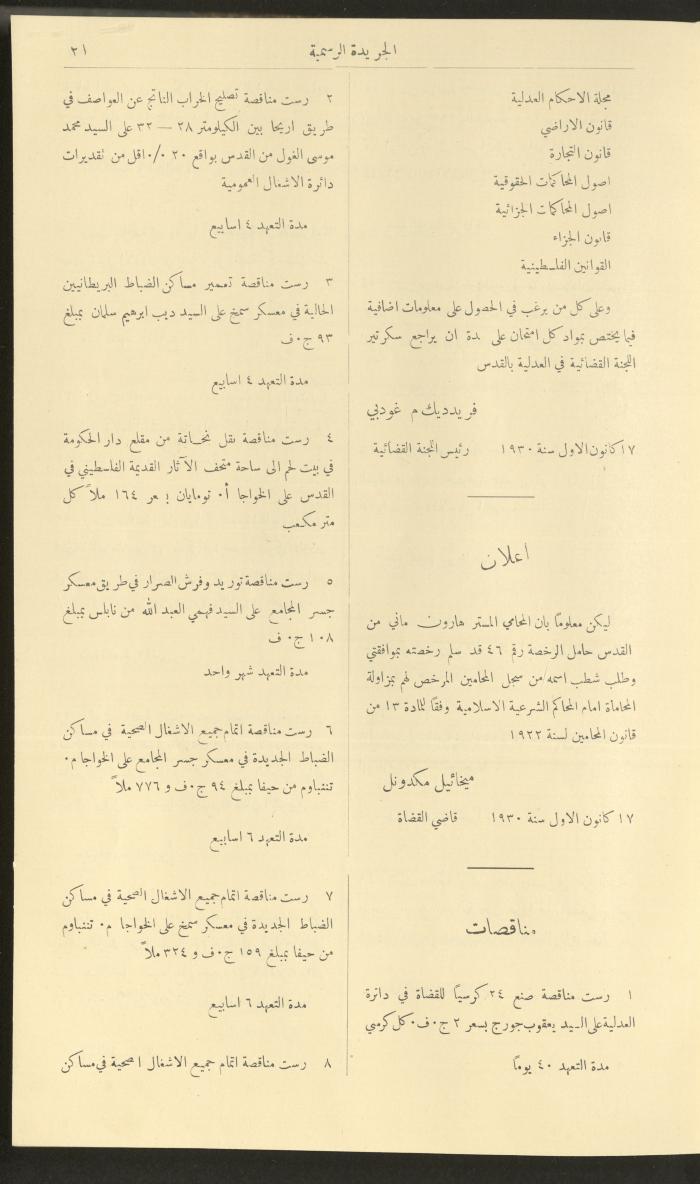 الجريدة الرسمية
٢١
مجلة الاحكام العدلية
قانون الاراضي
قانون التجارة
اصول المحاكمات الحقوقية
اصول المحاكمات الجزائية
قانون الجزاء
القوانين الفلسطينية
وعلى كل من يرغب في الحصول على معلومات اضافية
فيما يختص بمواد كل امتحان على دة ان يراجع سكرتير
اللجنة القضائية في العدلية بالقدس
فريدديك م غودبي
١٧ كانون الاول سنة ١٩٣٠ رئيس اللجنة القضائية
اعلان
ليكن معلومًا بان المحامي المستر هارون ماني من
القدس حامل الرخصة رقم ٤٦ قد سلم رخصته بموافقتي
وطلب شطب اسمه من سجل المحامين المرخص لهم بمزاولة
المحاماة امام المحاكم الشرعية الاسلامية وفقًا للمادة ١٣ من
قانون المحامين لسنة ١٩٢٢
ميخائيل مكدونل
١٧ كانون الاول سنة ١٩٣٠ قاضي القضاة
مناقصات
١ رست مناقصة صنع ٢٤ كرسيًا للقضاة في دائرة
العدلية على السيد يعقوب جورج بسعر ٢ ج٠ف٠ كل كرسي
مدة التعهد ٤٠ يومًا
٢ رست مناقصة تصليح الخراب الناتج عن العواصف في
طريق اريحا بين الكيلومتر ٢٨ — ٣٢ على السيد محمد
موسى الغول من القدس بواقع ٢٠ ٠/٠ اقل من تقديرات
دائرة الاشغال العمومية
مدة التعهد ٤ اسابيع
٣ رست مناقصة تعمير مساكن الضباط البريطانيين
الحالية في معسكر سمخ على السيد ديب ابرهيم سلمان بمبلغ
٩٣ ج٠ف
مدة التعهد ٤ اسابيع
٤ رست مناقصة نقل نحاتة من مقلع دار الحكومة
في بيت لحم الى ساحة متحف الآثار القديمة الفلسطيني في
القدس على الخواجا أ٠ تومايان بسعر ١٦٤ ملاً كل
متر مكعب
٥ رست مناقصة توريد وفرش الصرار في طريق معسكر
جسر المجامع على السيد فهمي العبد الله من نابلس بمبلغ
١٠٨ ج٠ ف
مدة التعهد شهر واحد
٦ رست مناقصة اتمام جميع الاشغال الصحية في مساكن
الضباط الجديدة في معسكر جسر المجامع على الخواجا م٠
تننباوم من حيفا بمبلغ ٩٤ ج٠ف و ٧٧٦ ملاً
مدة التعهد ٦ اسابيع
٧ رست مناقصة اتمام جميع الاشغال الصحية في مساكن
الضباط الجديدة في معسكر سمخ على الخواجا م٠ تننباوم
من حيفا بمبلغ ١٥٩ ج٠ف و ٣٢٤ ملاً
مدة التعهد ٦ اسابيع
٨ رست مناقصة اتمام جميع الاشغال الصحية في مساكن